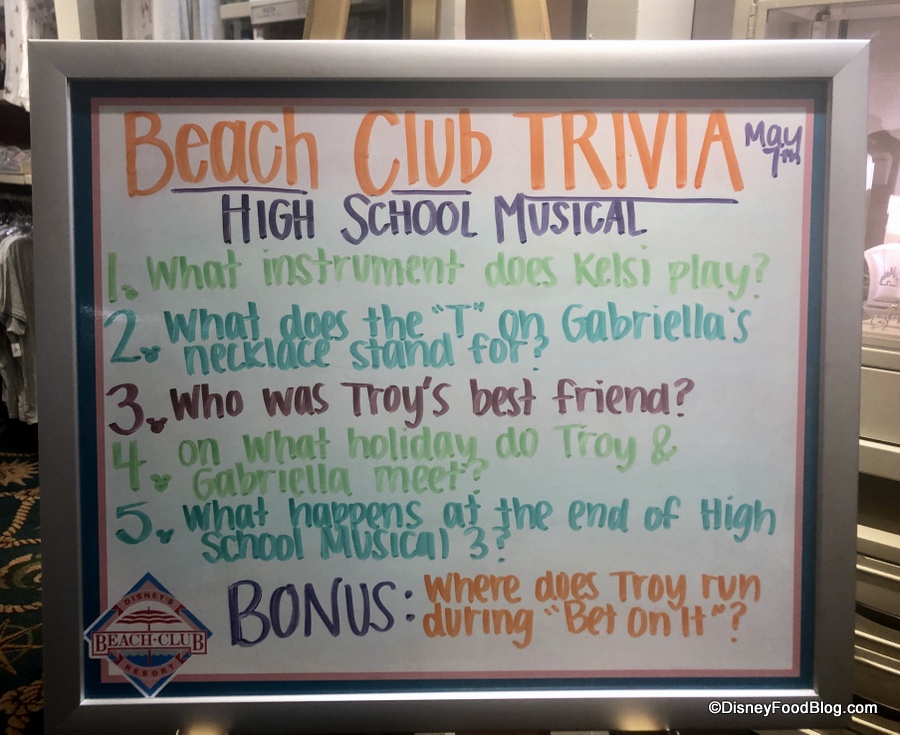 Beach Club TRIVIA May 7th
HIGH SCHOOL MUSICAL
1. What instrument does Kelsi play?
2. What does the "T" on Gabriella's
necklace stand for?
3. Who was Troy's best friend?
4. on what holiday do Troy &
Gabriella meet?
5. What happens at the end of High
School Musical 3?
BONUS: Where does Troy run
during "Bet On It"?
DISNEY'S
BEACH CLUB
RESORT
©DisneyFoodBlog.com